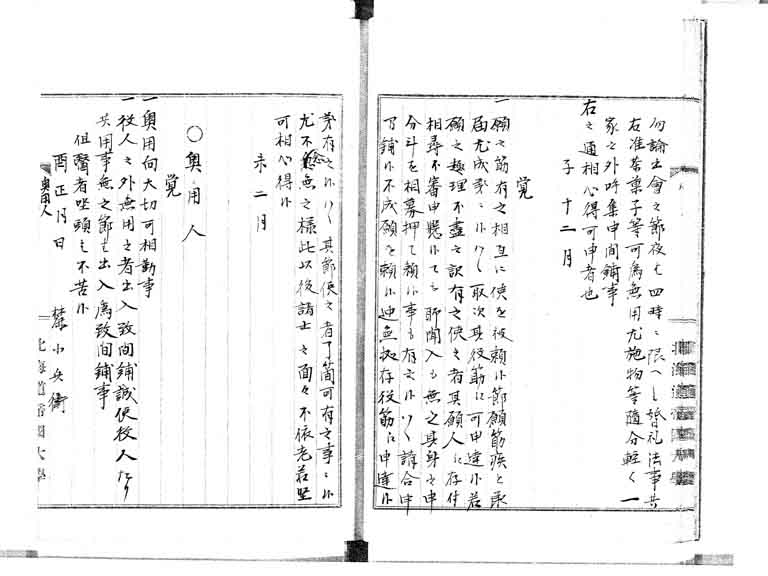 何論士會之節夜も四時ニ限へし婚礼法事共
右准茶菓子等可為無用尤施物等隨分輕く一
家之外呼集申間鋪事
右之通相心得可申者也
子十二月
覚
一願之筋有之相互に使を被頼候節願筋疾と承
届尤成事ニ候ハヽ取次其役筋に可申達候若
願之趣理不盡之訳有之使之者其願人に存付
相尋不審申懸候ても聊聞入も無之其身之申
分斗を相募押て頼候事も有之候ハヽ請合申
間鋪候不成願を頼候迚無拠存役筋に申達候
事有之候ハヽ其節使之者了簡可有之事ニ候
尤不念無之様此以後諸士之面々不依老若堅
可相心得候
未二月
○奥用人
覚
一奥用向大切可相勤事
一役人之外無用之者出入致間鋪誠使役人たり
共用事無之節も出入為致間鋪事
但醫者座頭も不苦候
酉正月日
麓小兵衛
奥用人
北海道帝国大學
北海道帝国大學